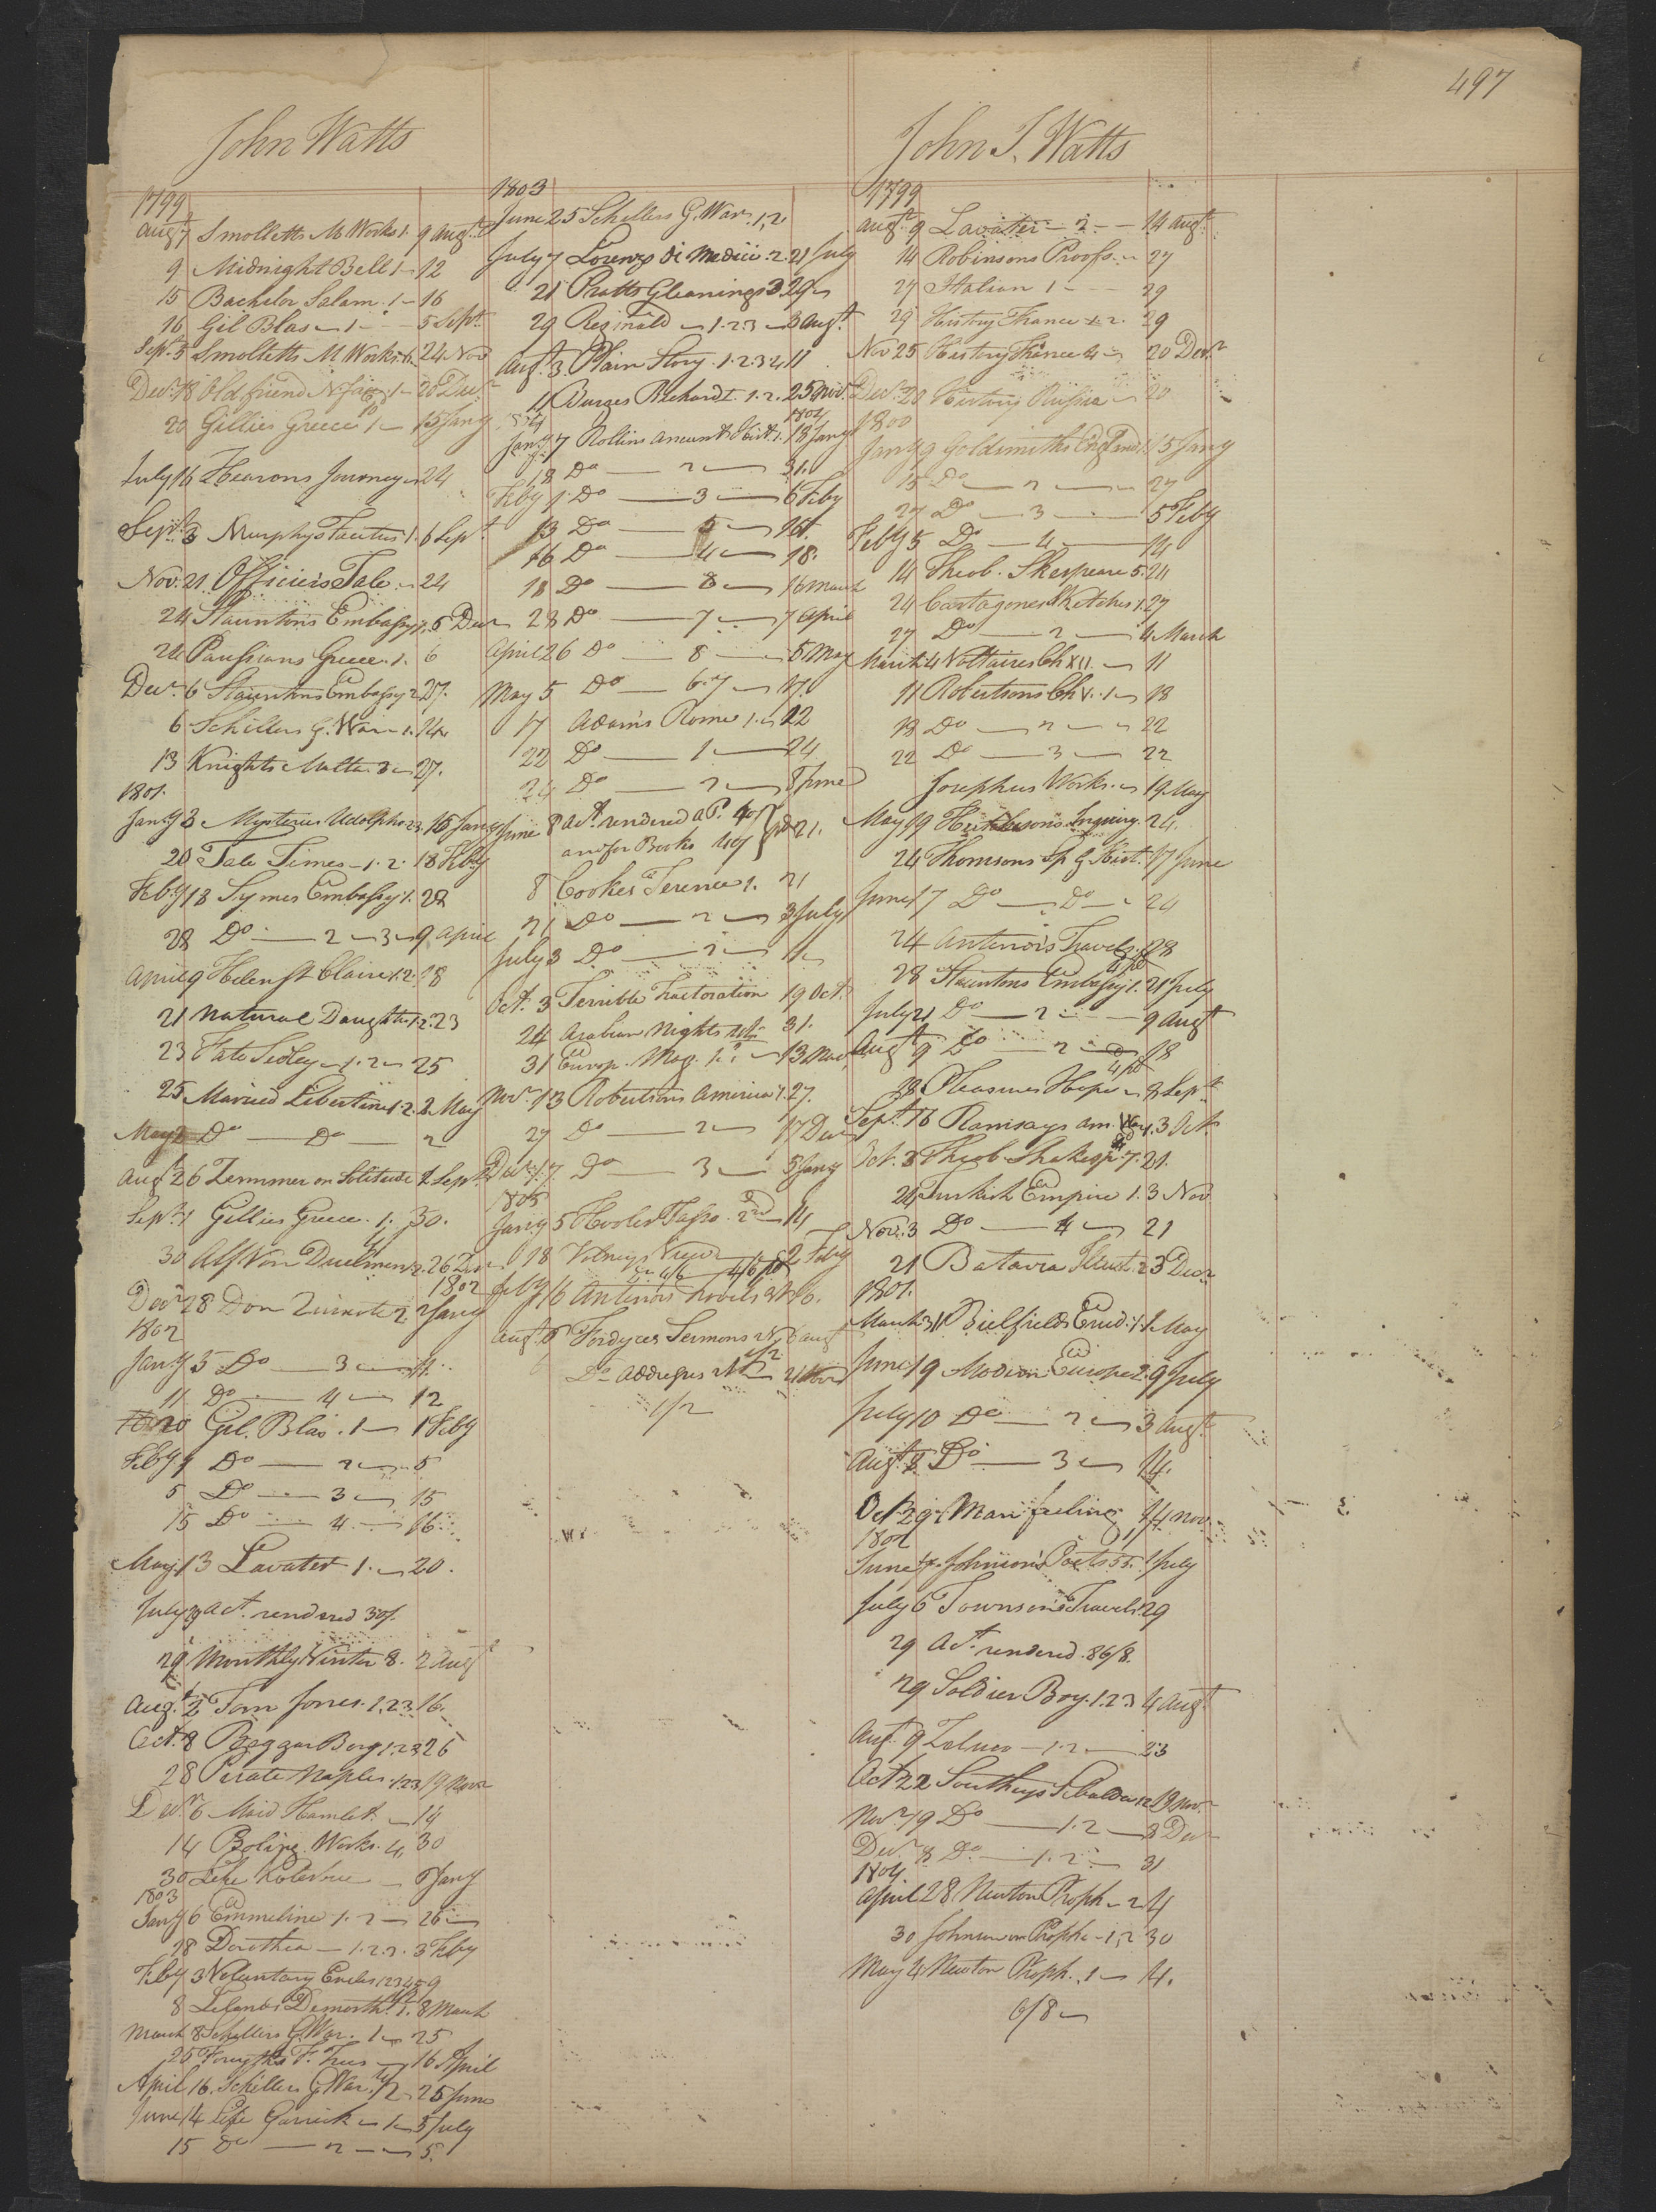 497
John Watts
1799
Augt 7 Smolletts M Works 1. 9 Augt
9 Midnight Bell 1 12
15 Bachelor Salam. 1 16
16 Gil Blas 1 5 Sept
Sept 5 Smolletts M Works 6. 24 Nov
Decr 18 Old friend 1 20 Decr
20 Gillies Greece 1 15 Jany
July 16 Hearons Journey 24
Sept 3 Murphys Tacitus 1. 6 Sept
Nov. 21 Officers Tale 24
24 Stauntons Embassy 1. 6 Decr
24 Paussians Greece. 1. 6
Decr. 6 Stauntons Embassy 2 27.
6 Schillers G. War 1. 24
13 Knights Malta 3 27.
1801.
Jany 3 Mysteries Udolpho 2.3. 15 Jany
20 Tale Times 1. 2. 18 Feby
Feby 18 Symes Embassy 1. 28
28 Do 2 3 9 April
April 9 Helen St Claire 1.2. 18
21 Natural Daughter 1.2. 23
23 Fate Sedley 1. 2 25
25 Married Libertine 1.2. 2 May
May 2 Do Do 2
Augt 26 Zemmer on Solitude 1 Sept
Sept. 1 Gillies Greece. 1. 30.
30 Alf Von Duelmen 2. 26 Decr
1802
Decr 28 Don Quixote 2 2 Jany
1802
Jany 5 Do 3 11.
11 Do 4 12
20 Gil. Blas. 1 1 Feby
Feby 1 Do 2 5
5 Do 3 15
15 Do 4 16
May 13 Lavater 1. 20.
July 29 Act. rendered 30/.
29 Monthly Visitor 8. 2 Augt
Augt. 2 Tom Jones. 1.2.3 16.
Oct. 8 Beggar Boy 1.2.3 26
28 Pirate Naples. 1.2.3 19 Novr
Decr 6 Maid Hamlet 14
14 Boling. Works. 4. 30
30 Life Kotzebue 6 Jany
1803
Jany 6 Emmeline 1. 2 26
18 Dorothea 1. 2. 3. 3 Feby
Feby 3 Voluntary Exiles 1 2 3 4 5 9
8 Lelands Demosth. 1. 8 March
March 8 Schillers G War. 1 25
25 Forsyths F. Trees 16 April
April 16. Schillers G War. 2 25 June
June 14 Life Garrick 1 5 July
15 Do 2 5.
1803
June 25 Schillers G. War. 1,2
July 7 Lorenzo di Medici. 2. 21 July
21 Pratts Gleanings 3 29
29 Reginald 1.2.3 3 Augt
Augt. 3. Plain Story. 1. 2. 3 4 11
11 Burges Richard I. 1. 2. 25 Novr.
1804 1804
Jany 7 Rollins Ancient Hist 1. 18 Jany
18 Do 2 31.
Feby 1 Do 3 6 Feby
13 Do 5 16.
16 Do 4 18.
18 Do 8 16 March
28 Do 7 7 April
April 26 Do 8 5 May
May 5 Do 6.7 17.
17 Adams Rome 1. 22
22 Do 1 24
24 Do 2 8 June
June 8 Act. rendered
and for Books 21.
8 Cookes Terence 1. 21
21 Do 2 3 July
July 3 Do 2 11
Oct. 3 Terrible Tractoration 19 Oct.
24 Arabian Nights 31.
31 Europ. Mag. 13 Novr
Novr. 13 Robertsons America 1. 27.
27 Do 2 17 Decr
Decr. 17. Do 3 5 Jany
1805
Jany 5 Hooles Tasso. 2nd 14
18 Volneys View 2 Feby
Feby 16 Antenors Travels
Augt. 6 Fordyces Sermons Augt
Do Addresses Novr
1/2
John I. Watts
1799
Augt. 9 Lavater 2 14 Augt
14 Robinsons Proofs. 27
27 Italian 1 29
29 History France 2. 29
Nov 25 History France 4 20 Decr
Decr. 20 History Russia 20
1800
Jany 9 Goldsmiths England 1. 15 Jany
15 Do 2 27
27 Do 3 5 Feby
Feby 5 Do 4 14
14 Theob. Skespeare 5. 24
24 Cartagenes Sketches 1. 27
27 Do 2 4 March
March 4 Voltaires Ch XII. 11
11 Robertsons Ch V. 1 18
18 Do 2 22
22 Do 3 22
Josephus Works. 19 May
May 19 Hutchesons Inquiry. 24.
24 Thomsons Sp G Hist. 17 June
June 17 Do Do 24
24 Antenors Travels. 28
28 Stauntons Embassy 1. 21 July
July 21 Do 2 9 Augt
Augt 9 Do 2 18
28 Pleasures Hope 3 Sept
Sept. 16 Ramsays Am. War 1. 3 Oct.
Oct. 3 Theob. Shakesp. 7. 21.
24 Turkish Empire 1. 3 Nov.
Nov. 3 Do 4 21
21 Batavia Illust. 23 Decr
1801.
March 31 Bielfields Erud. 1. 1 May
June 19 Modern Europe 2. 9 July
July 10 Do 2 3 Augt
Augt. 8 Do 3 14.
Oct. 29 Man feeling 14 Novr.
1802
June Johnsons Poets 55. 1 July
July 6 Townsons Travels 29
29 Act. rendered. 86/8.
29 Soldier Boy. 1.2 3 4 Augt
Augt. 9 Zeluco 1. 2 23
Oct 22 Southeys Thalaba 1 2 19 Novr.
Novr. 19 Do 1. 2 8 Decr
Decr 8 Do 1. 2 31
1804
April 28 Newton Proph 2 4
30 Johnson on Prophe 1,2 30
May 4 Newton Proph. 1 14.
6/8